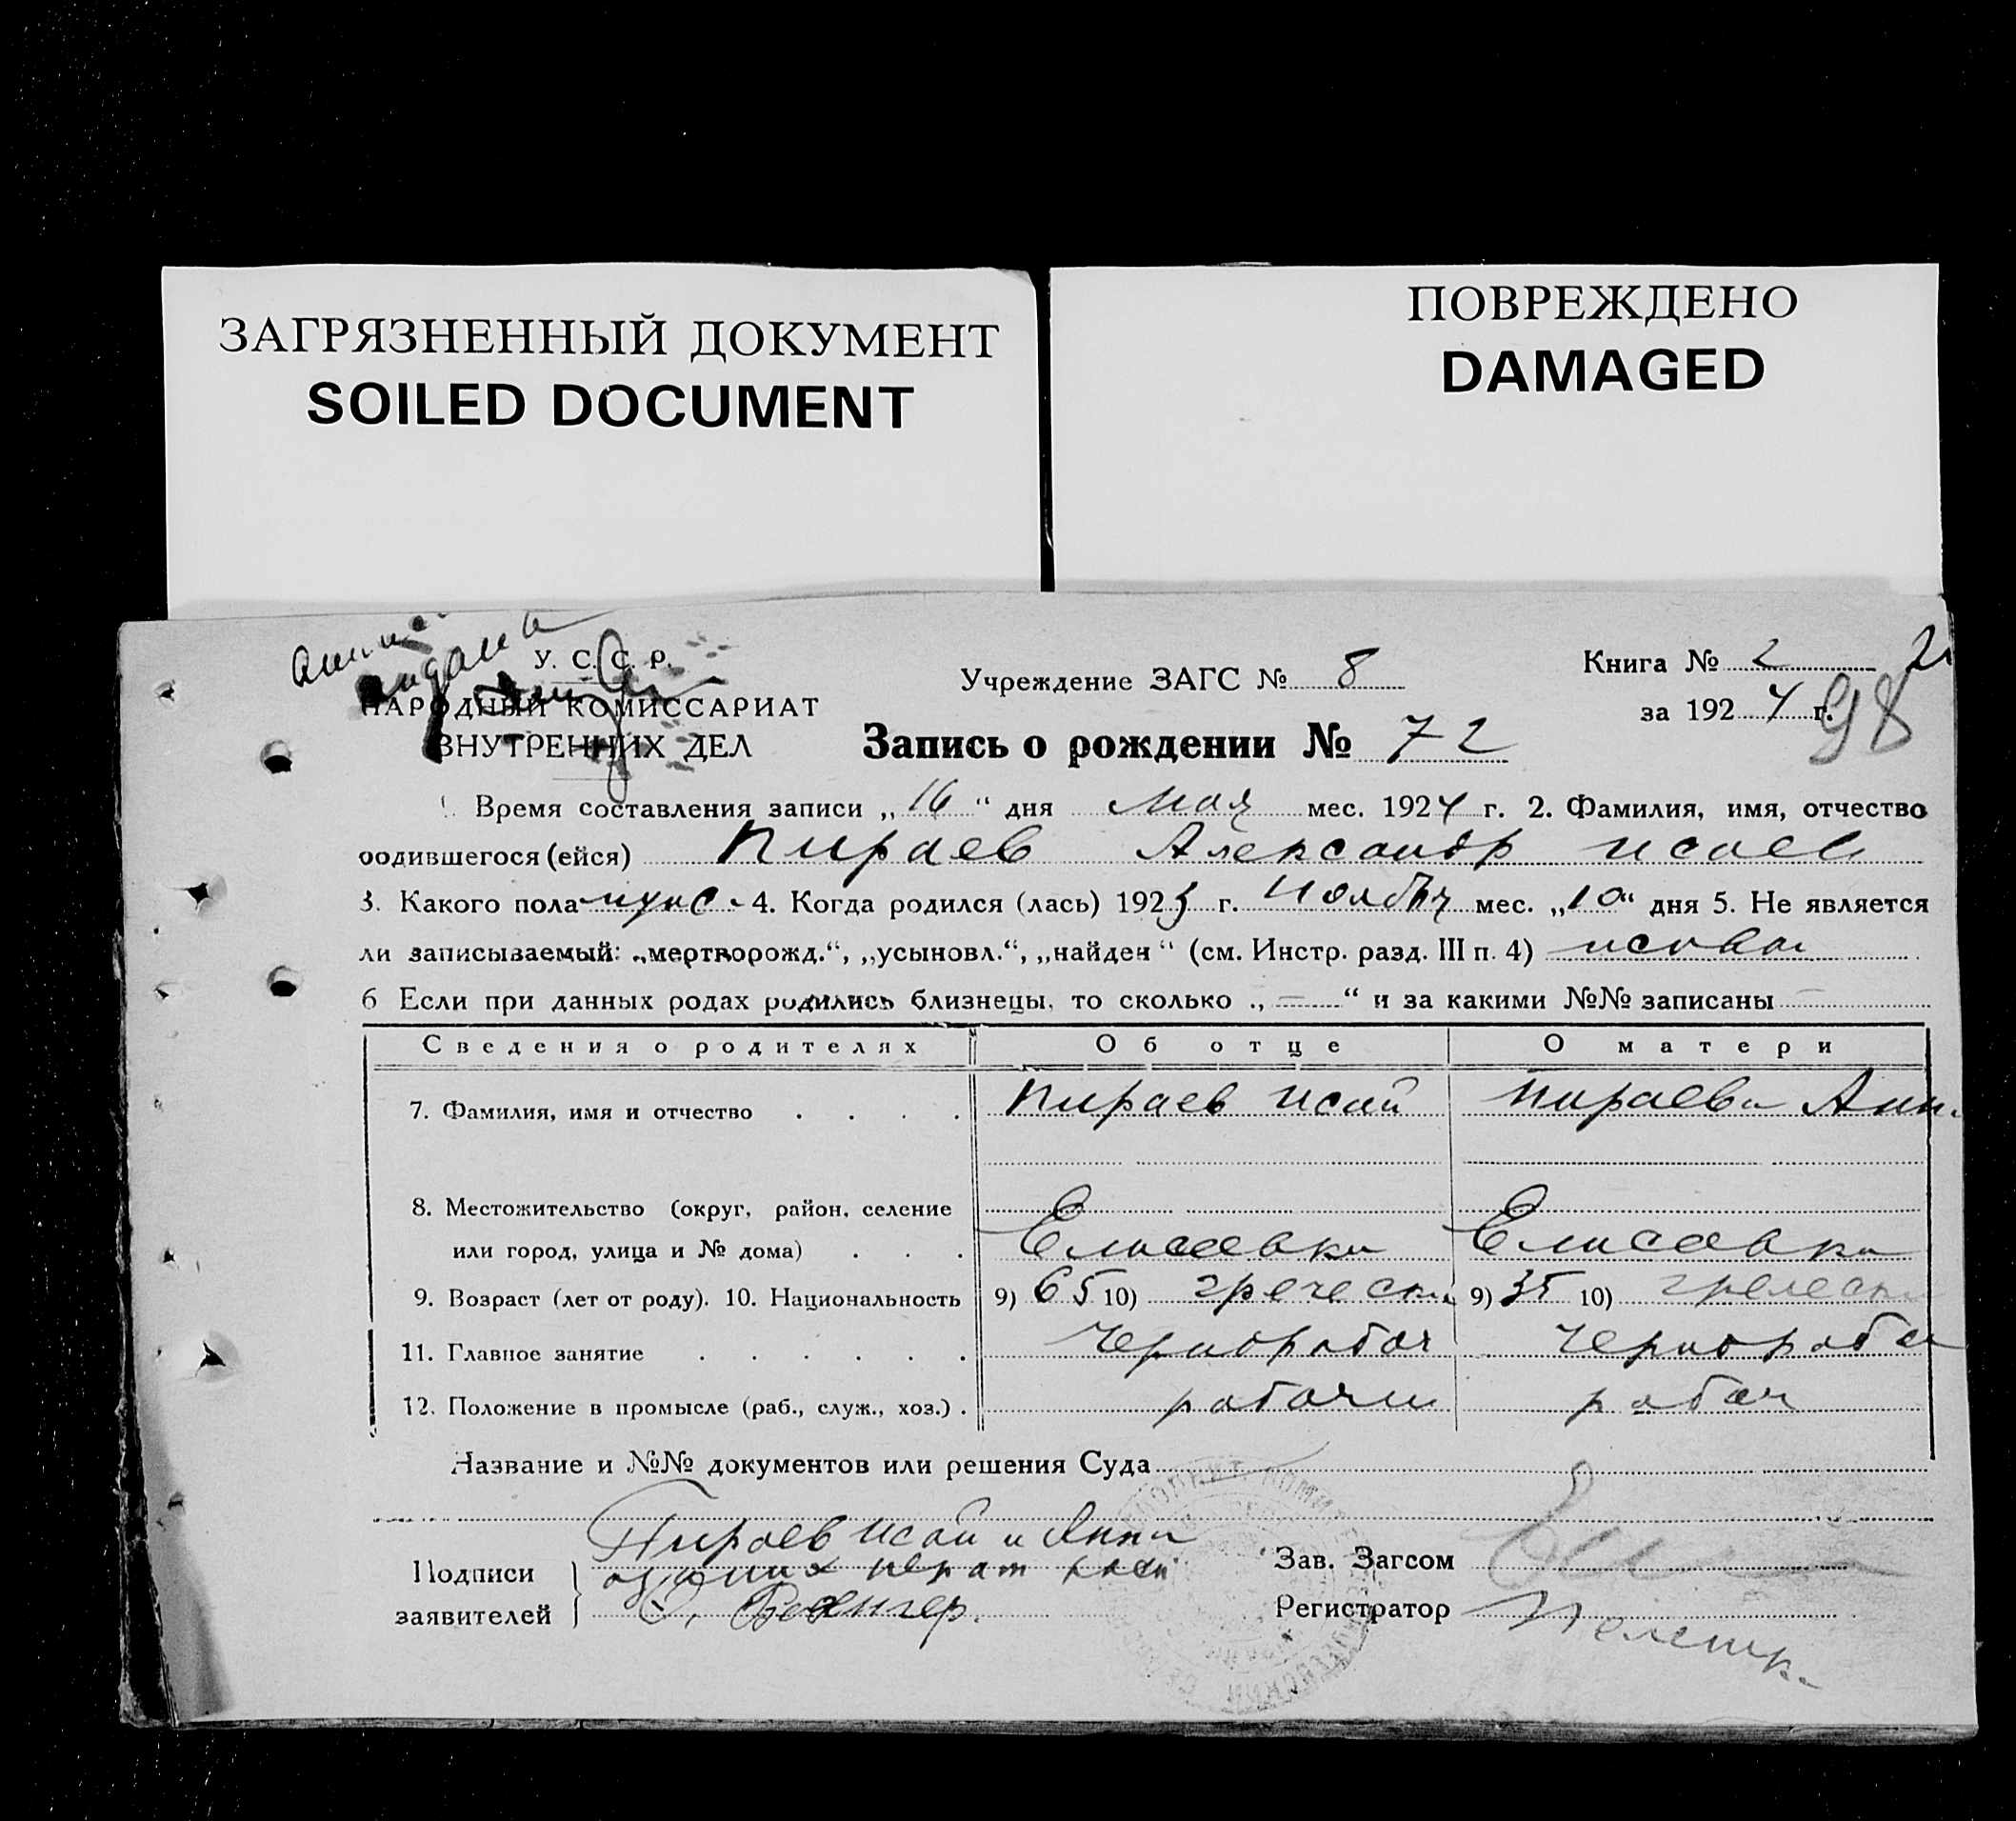 ЗАГРЯЗНЕННЫЙ ДОКУМЕНТ
SOILED DOCUMENT
ПОВРЕЖДЕНО
DAMAGED
У. С. С. Р.
НАРОДНЫЙ КОМИССАРИАТ
ВНУТРЕННИХ ДЕЛ
Учреждение ЗАГС № 8
Книга № 2
за 1924 г.
98
Запись о рождении № 72
Время составления записи „16“ дня мая мес. 1924 г. 2. Фамилия, имя, отчество
родившегося (ейся) Пираев Александр Исаев
3. Какого пола муж 4. Когда родился (лась) 1923 г. Ноября мес. „10“ дня 5. Не является
ли записываемый: „мертворожд.“, „усыновл.“, „найден“ (см. Инстр. разд. III п. 4)
6 Если при данных родах родились близнецы, то сколько „—“ и за какими №№ записаны —
Сведения о родителях Об отце О матери
7. Фамилия, имя и отчество . . . . Пираев Исай Пираева Анна
8. Местожительство (округ, район, селение
или город, улица и № дома) . . . Елисавка Елисавка
9. Возраст (лет от роду). 10. Национальность 9) 65 10) гречески 9) 35 10) гречески
11. Главное занятие . . . . . . Чернорабоч Чернорабоч
12. Положение в промысле (раб., служ., хоз.) . рабочи рабоч
Название и №№ документов или решения Суда
Пираев Исай и Анна
Подписи
заявителей
Зав. Загсом
Регистратор